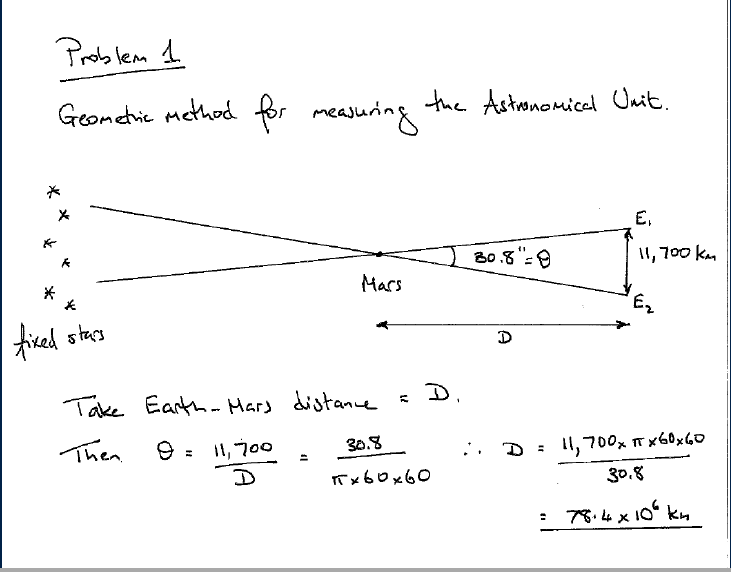 Problem 1
Geometric method for measuring the Astronomical Unit.
E₁
30.8"=θ
11,700 km
Mars
E₂
fixed stars
D
Take Earth-Mars distance = D.
Then θ = 11,700 / D = 30.8 / π×60×60 ∴ D = 11,700×π×60×60 / 30.8
= 78.4 × 10⁶ km